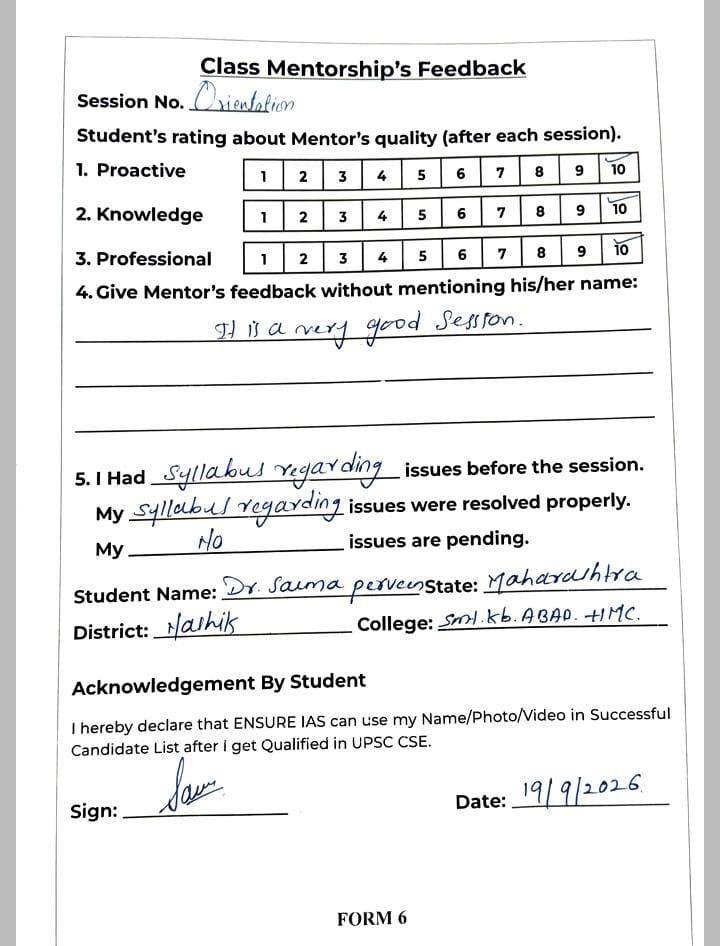 Class Mentorship's Feedback
Session No. Orientation
Student's rating about Mentor's quality (after each session).
1. Proactive 1 2 3 4 5 6 7 8 9 10
2. Knowledge 1 2 3 4 5 6 7 8 9 10
3. Professional 1 2 3 4 5 6 7 8 9 10
4. Give Mentor's feedback without mentioning his/her name:
It is a very good Session.
5. I Had syllabus regarding issues before the session.
My syllabus regarding issues were resolved properly.
My No issues are pending.
Student Name: Dr. Saima perveen State: Maharashtra
District: Nashik College: Smt. kb. ABAD. HMC.
Acknowledgement By Student
I hereby declare that ENSURE IAS can use my Name/Photo/Video in Successful
Candidate List after i get Qualified in UPSC CSE.
Sign: Date: 19/9/2026
FORM 6